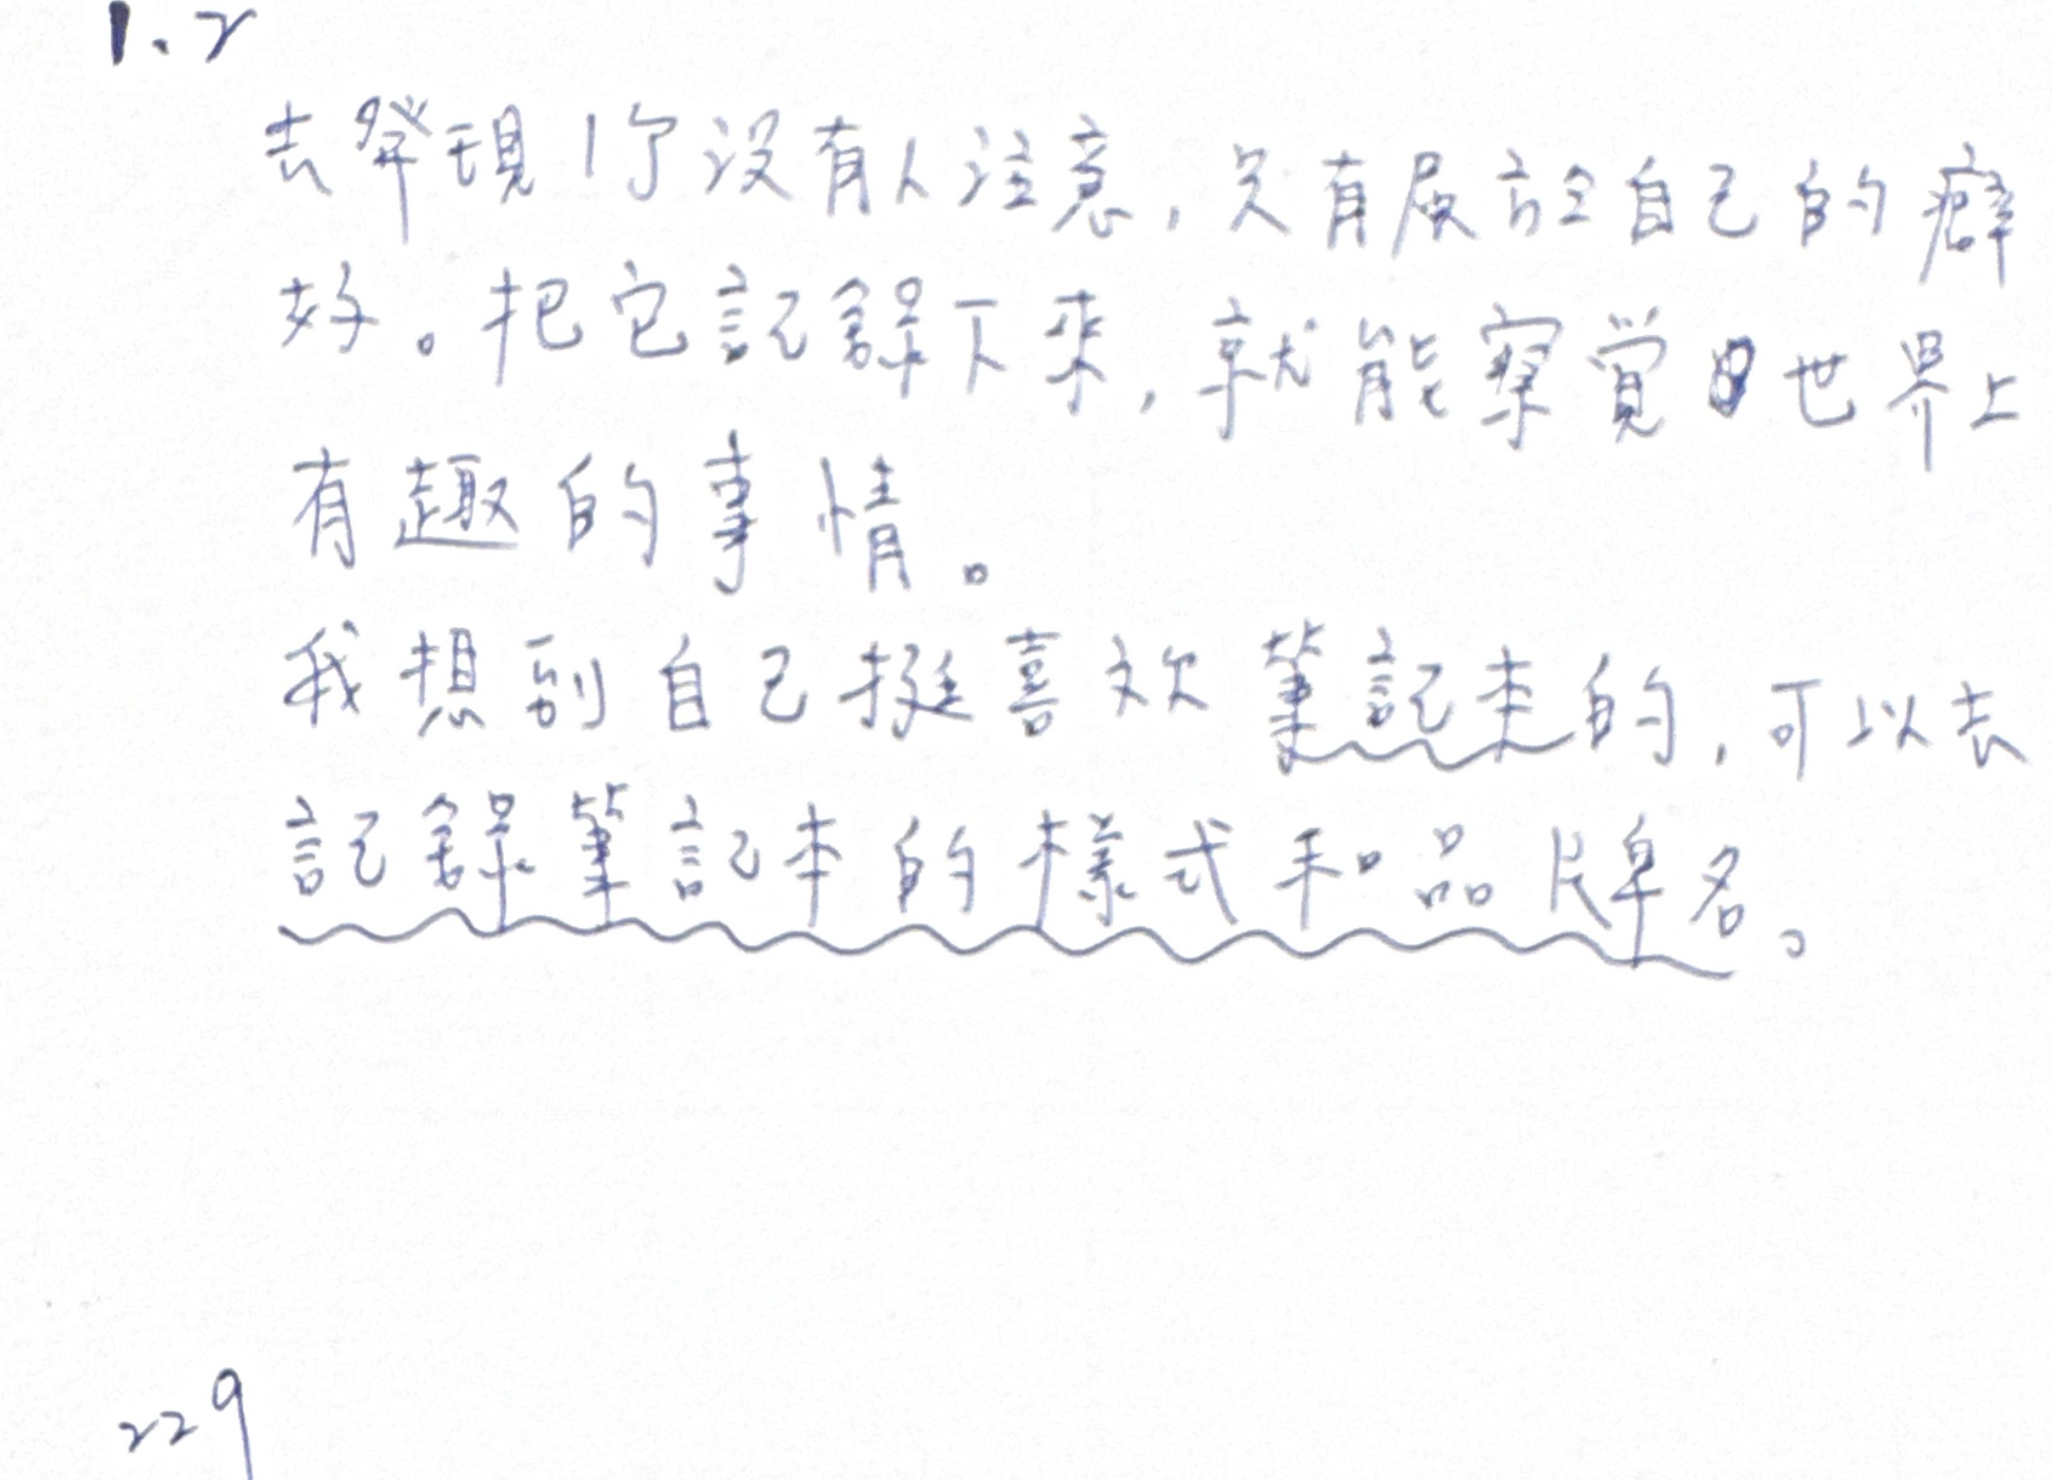 1.2
去發現1个沒有人注意,只有屬於自己的癖
好。把它記錄下來,就能察覺世界上
有趣的事情。
我想到自己挺喜欢筆記本的,可以去
記錄筆記本的樣式和品牌名。
229